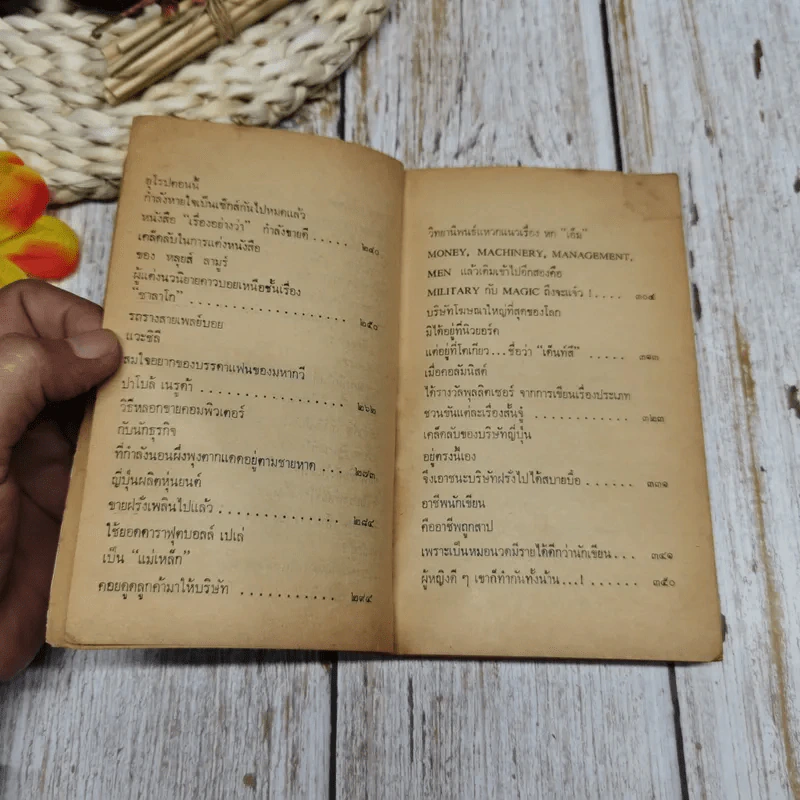 ยุโรปตอนนี้
กำลังหายใจเป็นเซ็กส์กันไปหมดแล้ว
หนังสือ "เรื่องอย่างว่า" กำลังขายดี ..... ๒๔๐
เคล็ดลับในการแต่งหนังสือ
ของ หลุยส์ ลามูร์
ผู้แต่งนวนิยายคาวบอยเหนือชั้นเรื่อง
"ชาลาโก" .................. ๒๕๐
รถรางสายเพลย์บอย
แวะซิลี
สมใจอยากของบรรดาแฟนของมหากวี
ปาโบล้ เนรูด้า .................. ๒๖๒
วิธีหลอกขายคอมพิวเตอร์
กับนักธุรกิจ
ที่กำลังนอนผึ่งพุงตากแดดอยู่ตามชายหาด ... ๒๗๓
ญี่ปุ่นผลิตหุ่นยนต์
ขายฝรั่งเพลินไปแล้ว .................. ๒๘๔
ใช้ยอดดาราฟุตบอลล์ เปเล่
เป็น "แม่เหล็ก"
คอยดูดลูกค้ามาให้บริษัท ........... ๒๙๔
วิทยานิพนธ์แหวกแนวเรื่อง หก "เอ็ม"
MONEY, MACHINERY, MANAGEMENT,
MEN แล้วเติมเข้าไปอีกสองคือ
MILITARY กับ MAGIC ถึงจะแจ๋ว ! .... ๓๐๔
บริษัทโฆษณาใหญ่ที่สุดของโลก
มิได้อยู่ที่นิวยอร์ค
แต่อยู่ที่โตเกียว...ชื่อว่า "เด็นท์สึ" ..... ๓๑๓
เมื่อคอลัมนิสต์
ได้รางวัลพุลลิตเซอร์ จากการเขียนเรื่องประเภท
ชวนขันแต่ละเรื่องสั้นจู๋ ............ ๓๒๓
เคล็ดลับของบริษัทญี่ปุ่น
อยู่ตรงนี้เอง
จึงเอาชนะบริษัทฝรั่งไปได้สบายบื๋อ ....... ๓๓๑
อาชีพนักเขียน
คืออาชีพถูกสาป
เพราะเป็นหมอนวดมีรายได้ดีกว่านักเขียน ... ๓๔๑
ผู้หญิงดี ๆ เขาก็ทำกันทั้งนั้น ...! ...... ๓๕๐